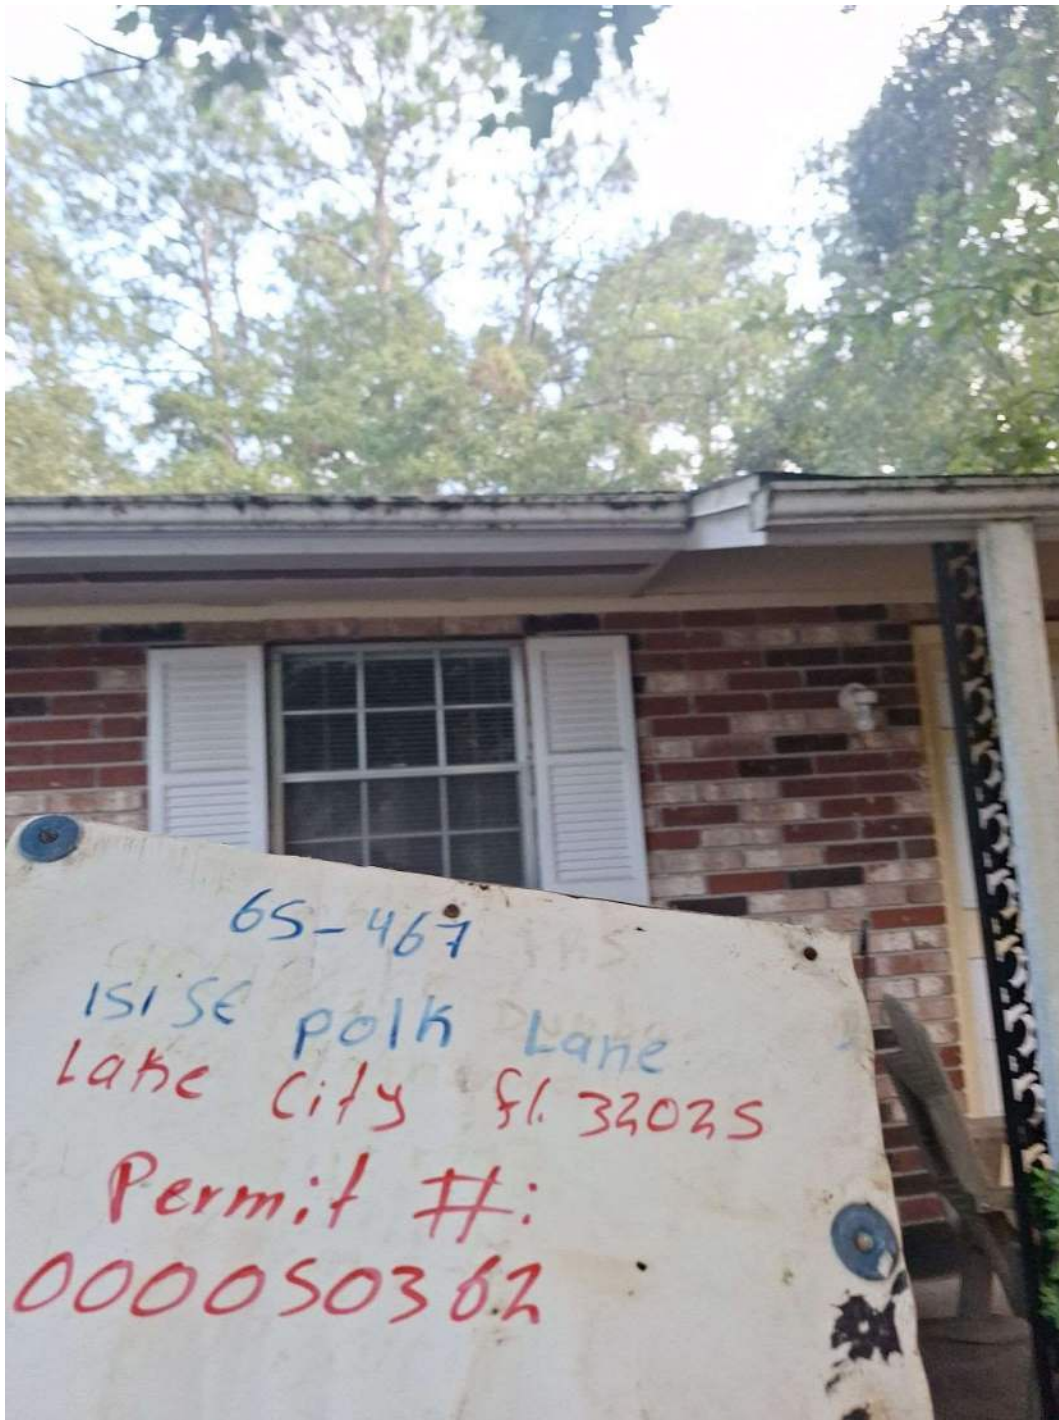 65-467
151 SE polk Lane
Lake City fl. 32025
Permit #:
000050362